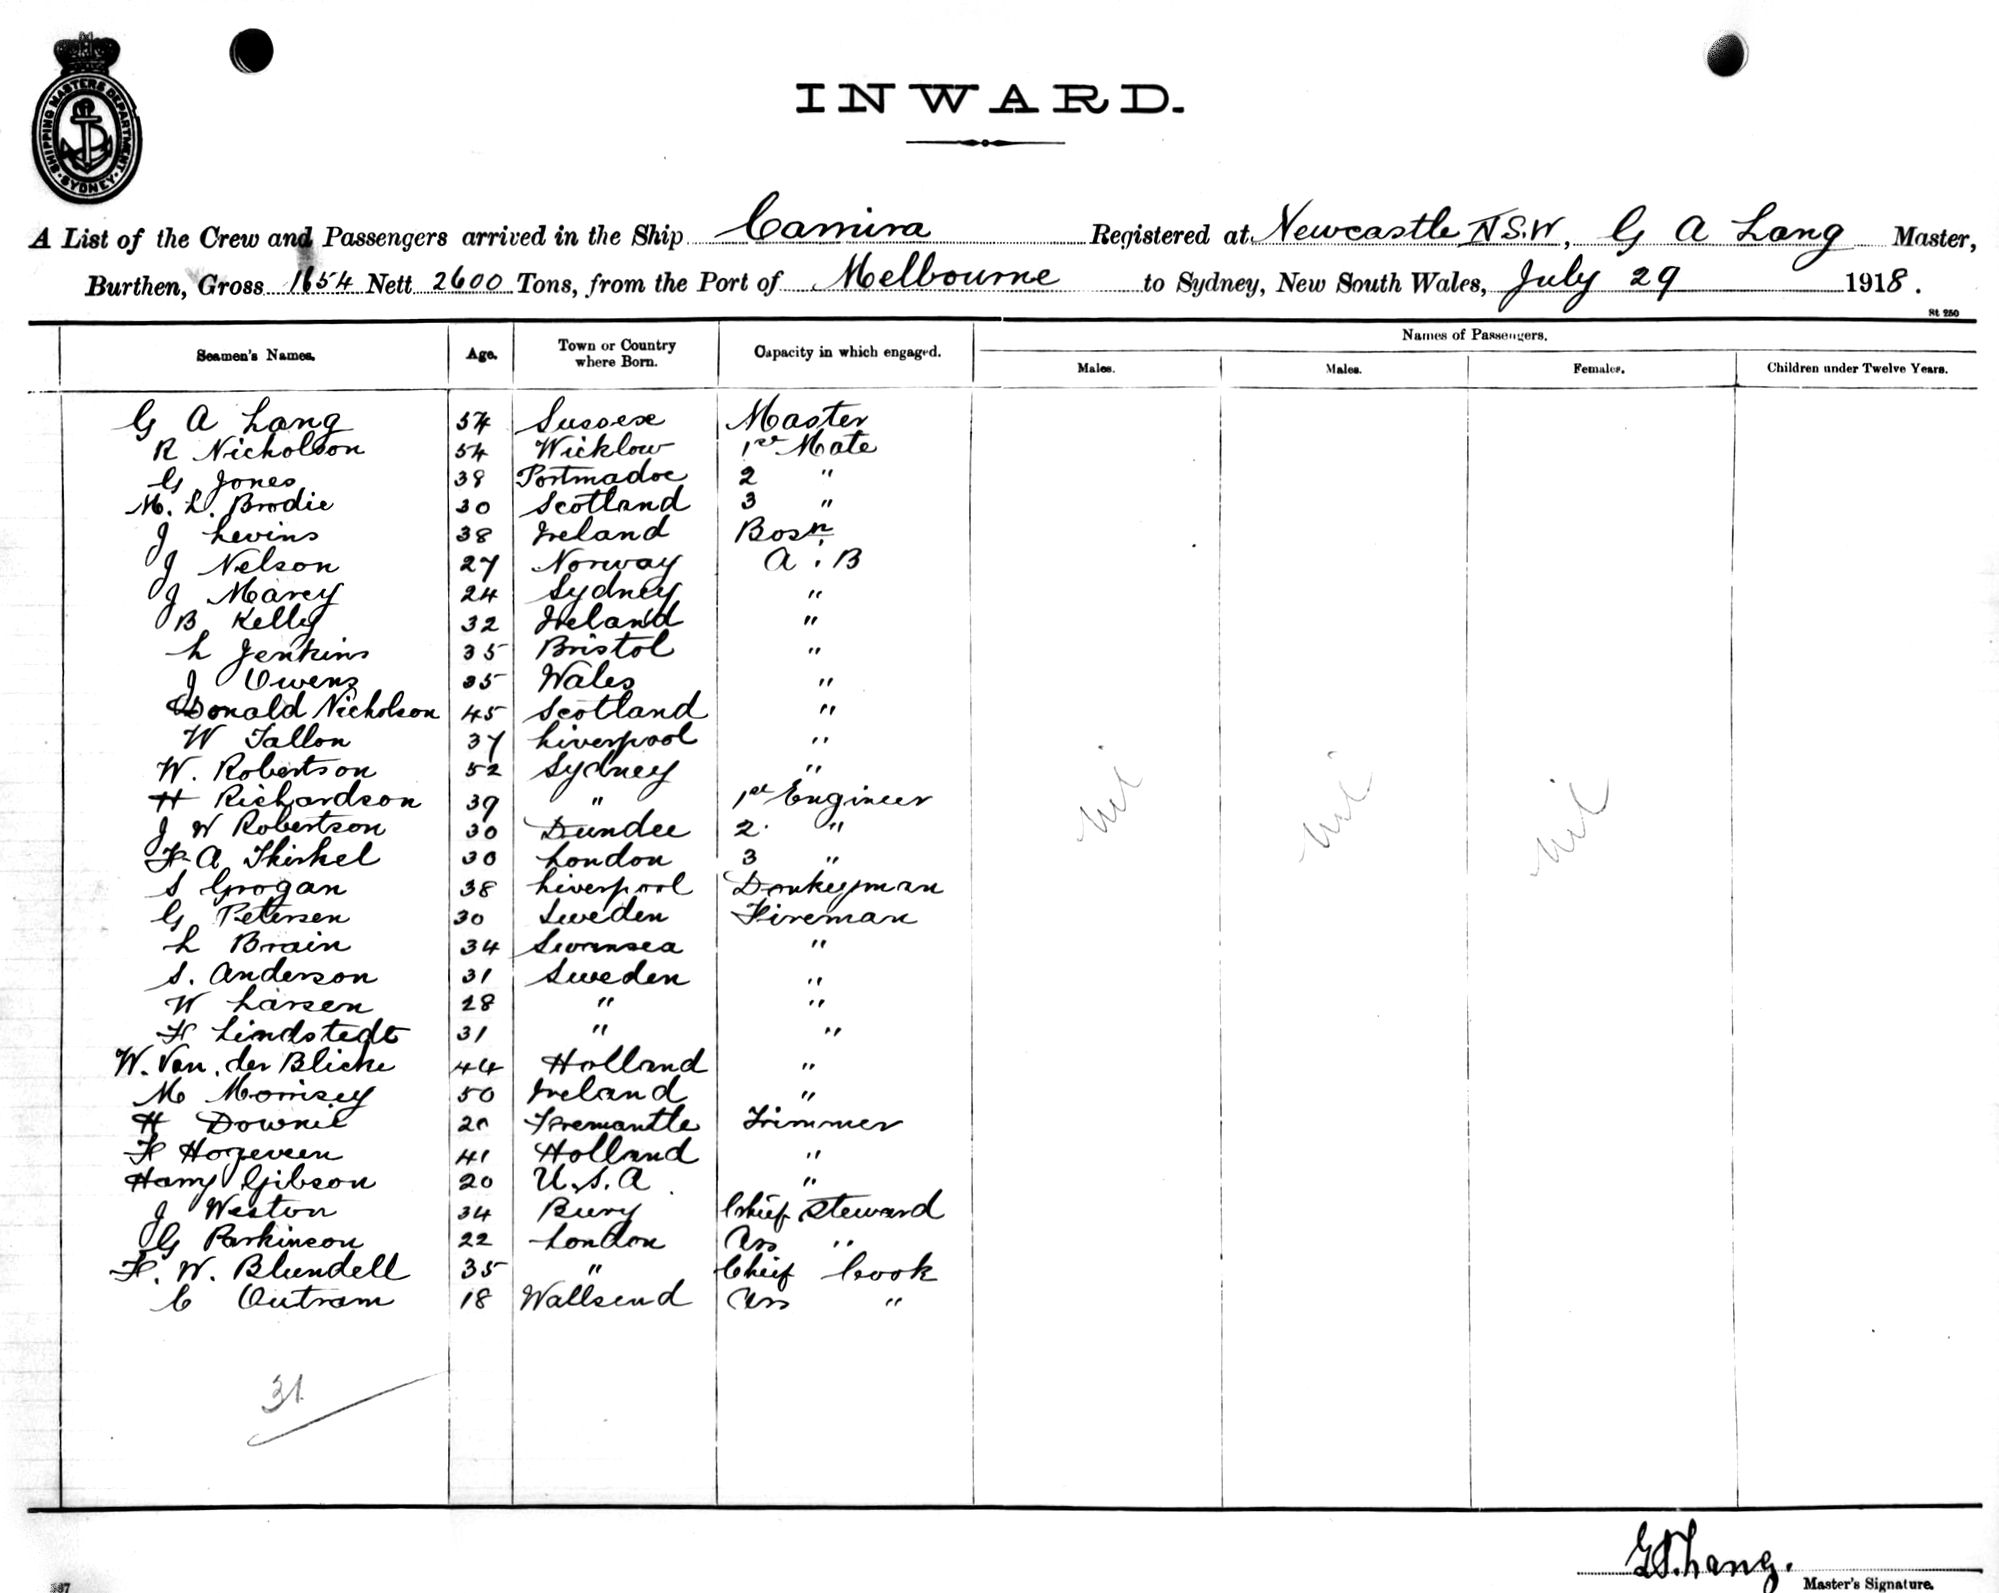 SHIPPING MASTERS DEPARTMENT SYDNEY
INWARD.
A List of the Crew and Passengers arrived in the Ship Camira Registered at Newcastle N.S.W, G A Lang Master,
Burthen, Gross 1654 Nett 2600 Tons, from the Port of Melbourne to Sydney, New South Wales, July 29 1918.
St 250
Seamen's Names. Age. Town or Country where Born. Capacity in which engaged. Names of Passengers.
Males. Males. Females. Children under Twelve Years.
G A Lang 54 Sussex Master
R Nicholson 54 Wicklow 1st Mate
G Jones 38 Portmadoc 2 "
M. L. Brodie 30 Scotland 3 "
J Levins 38 Ireland Bosn
J Nelson 27 Norway A.B
J Marcy 24 Sydney "
B Kelly 32 Ireland "
L Jenkins 35 Bristol "
J Owens 35 Wales "
Donald Nicholson 45 Scotland "
W Tallon 37 Liverpool "
W. Robertson 52 Sydney "
H Richardson 39 " 1st Engineer
J W Robertson 30 Dundee 2 "
F. A Thirkel 30 London 3 "
S Grogan 38 Liverpool Donkeyman
G Petersen 30 Sweden Fireman
L Brain 34 Swansea "
S. Anderson 31 Sweden "
W Larsen 28 " "
F Lindstedt 31 " "
W. Van. der Blicke 44 Holland "
M Morrisey 50 Ireland "
H Downie 20 Fremantle Trimmer
F Hogeveen 41 Holland "
Harry Gibson 20 U.S.A "
J Weston 34 Bury Chief Steward
G Parkinson 22 London Ass "
F. W. Blundell 35 " Chief Cook
C Outram 18 Wallsend Ass "
nil nil nil
31
G A Lang.
Master's Signature.